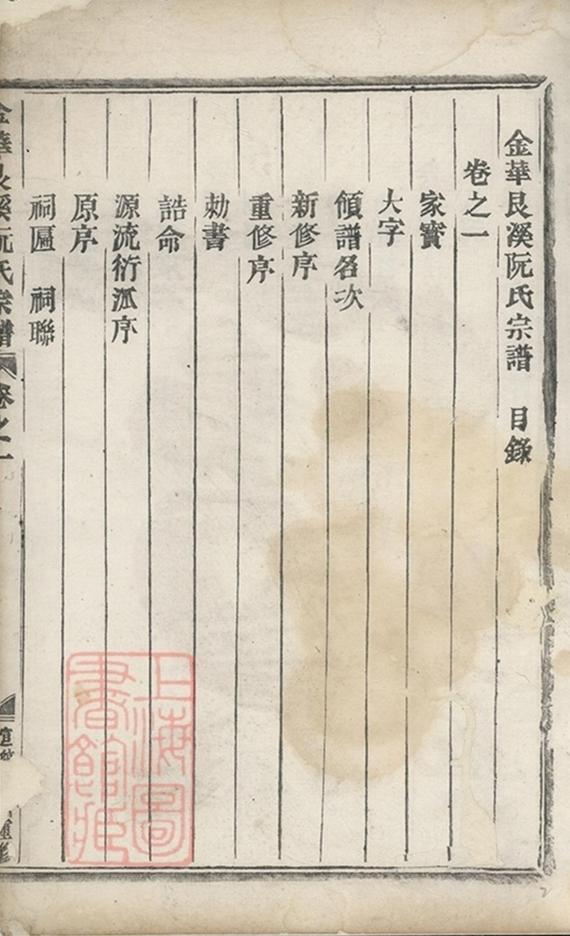 金華艮溪阮氏宗譜 目錄
卷之一
家寳
大字
領譜名次
新修序
重修序
勅書
誥命
源流衍派序
原序
祠匾 祠聯
金華艮溪阮氏宗譜 卷之一
上海圖書館藏